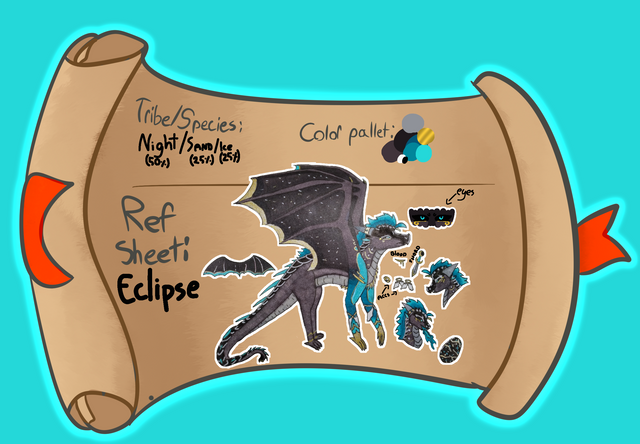 Tribe/Species:
Night/Sand/Ice
(50%) (25%) (25%)
Color pallet:
Ref
Sheet:
Eclipse
eyes
Blood
Acc's